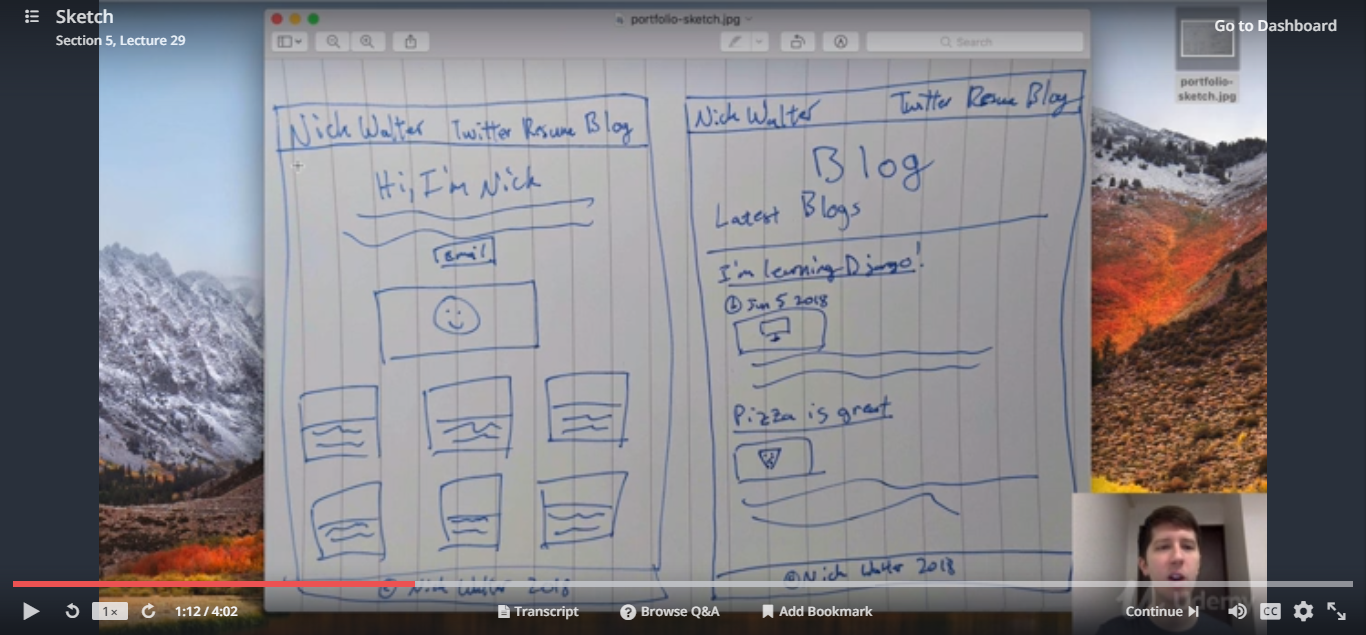 Sketch
Section 5, Lecture 29
portfolio-sketch.jpg
Search
Go to Dashboard
portfolio-
sketch.jpg
Nick Walter Twitter Resume Blog
Hi, I'm Nick
Email
© Nick Walter 2018
Nick Walter Twitter Resume Blog
Blog
Latest Blogs
I'm learning Django!
Jun 5 2018
Pizza is great
© Nick Walter 2018
1x
1:12 / 4:02
Transcript
Browse Q&A
Add Bookmark
Continue
CC
Udemy